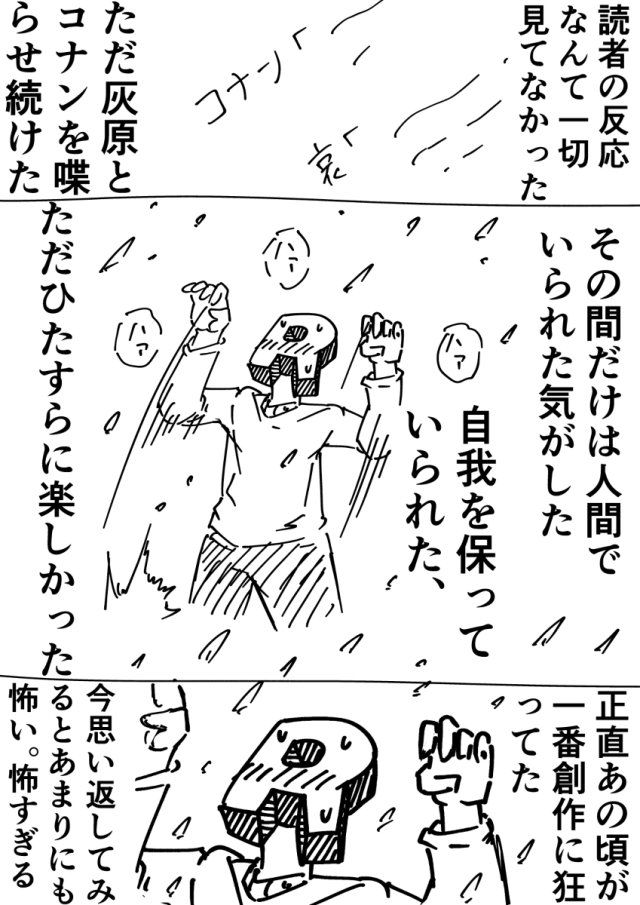 読者の反応
なんて一切
見てなかった
コナンく
哀く
ただ灰原と
コナンを喋
らせ続けた
その間だけは人間で
いられた気がした
自我を保って
いられた、
ハァ
ハァ
ハァ
ただひたすらに楽しかった
正直あの頃が
一番創作に狂
ってた
今思い返してみ
るとあまりにも
怖い。怖すぎる